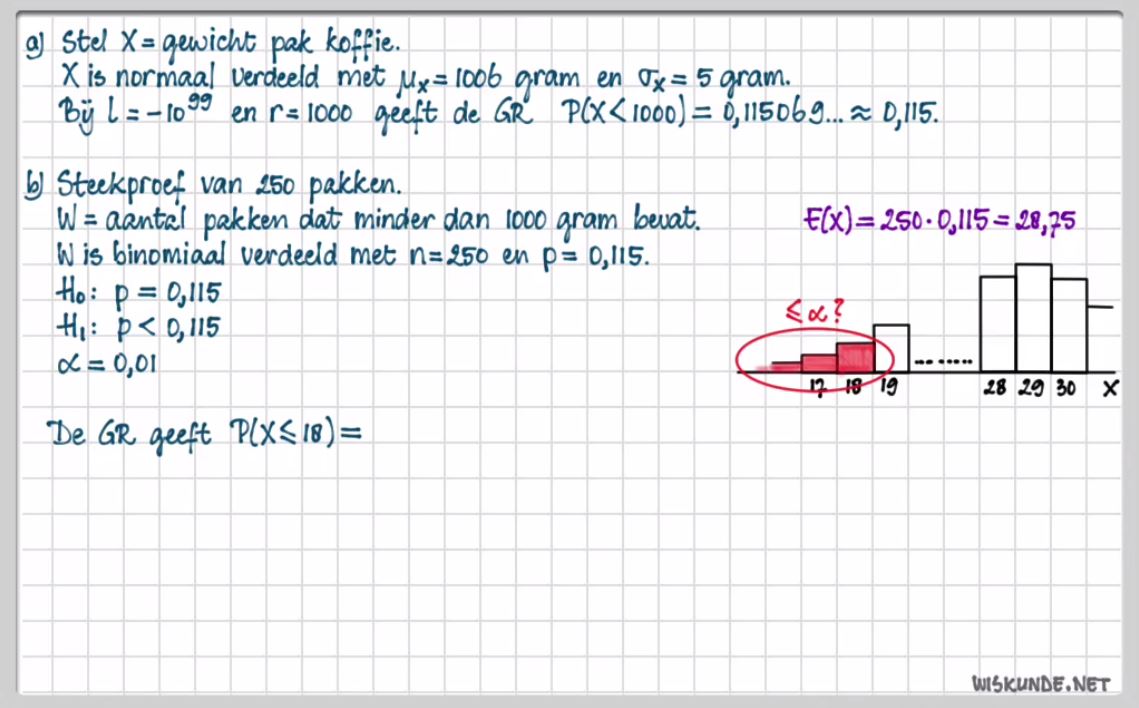 a) Stel X = gewicht pak koffie.
X is normaal verdeeld met μₓ = 1006 gram en σₓ = 5 gram.
Bij l = -10⁹⁹ en r = 1000 geeft de GR P(X < 1000) = 0,115069... ≈ 0,115.
b) Steekproef van 250 pakken.
W = aantal pakken dat minder dan 1000 gram bevat.
E(X) = 250 · 0,115 = 28,75
W is binomiaal verdeeld met n = 250 en p = 0,115.
H₀: p = 0,115
H₁: p < 0,115
α = 0,01
≤ α?
17 18 19 28 29 30 X
De GR geeft P(X ≤ 18) =
WISKUNDE.NET